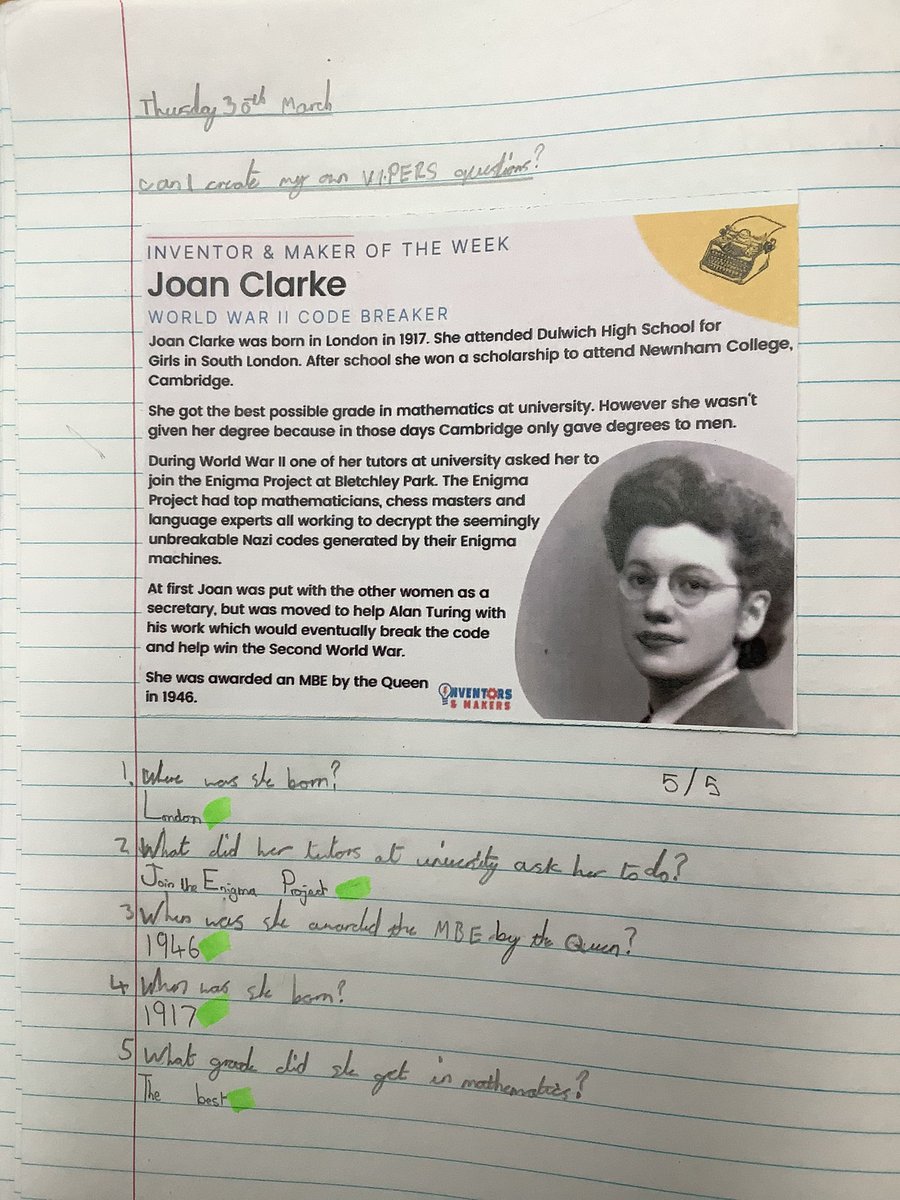 Thursday 30th March
Can I create my own VIPERS questions?
INVENTOR & MAKER OF THE WEEK
Joan Clarke
WORLD WAR II CODE BREAKER
Joan Clarke was born in London in 1917. She attended Dulwich High School for
Girls in South London. After school she won a scholarship to attend Newnham College,
Cambridge.
She got the best possible grade in mathematics at university. However she wasn't
given her degree because in those days Cambridge only gave degrees to men.
During World War II one of her tutors at university asked her to
join the Enigma Project at Bletchley Park. The Enigma
Project had top mathematicians, chess masters and
language experts all working to decrypt the seemingly
unbreakable Nazi codes generated by their Enigma
machines.
At first Joan was put with the other women as a
secretary, but was moved to help Alan Turing with
his work which would eventually break the code
and help win the Second World War.
She was awarded an MBE by the Queen
in 1946.
INVENTORS
& MAKERS
1. Where was she born? 5/5
London
2 What did her tutors at university ask her to do?
Join the Enigma Project
3 When was she awarded the MBE by the Queen?
1946
4 When was she born?
1917
5 What grade did she get in mathematics?
The best